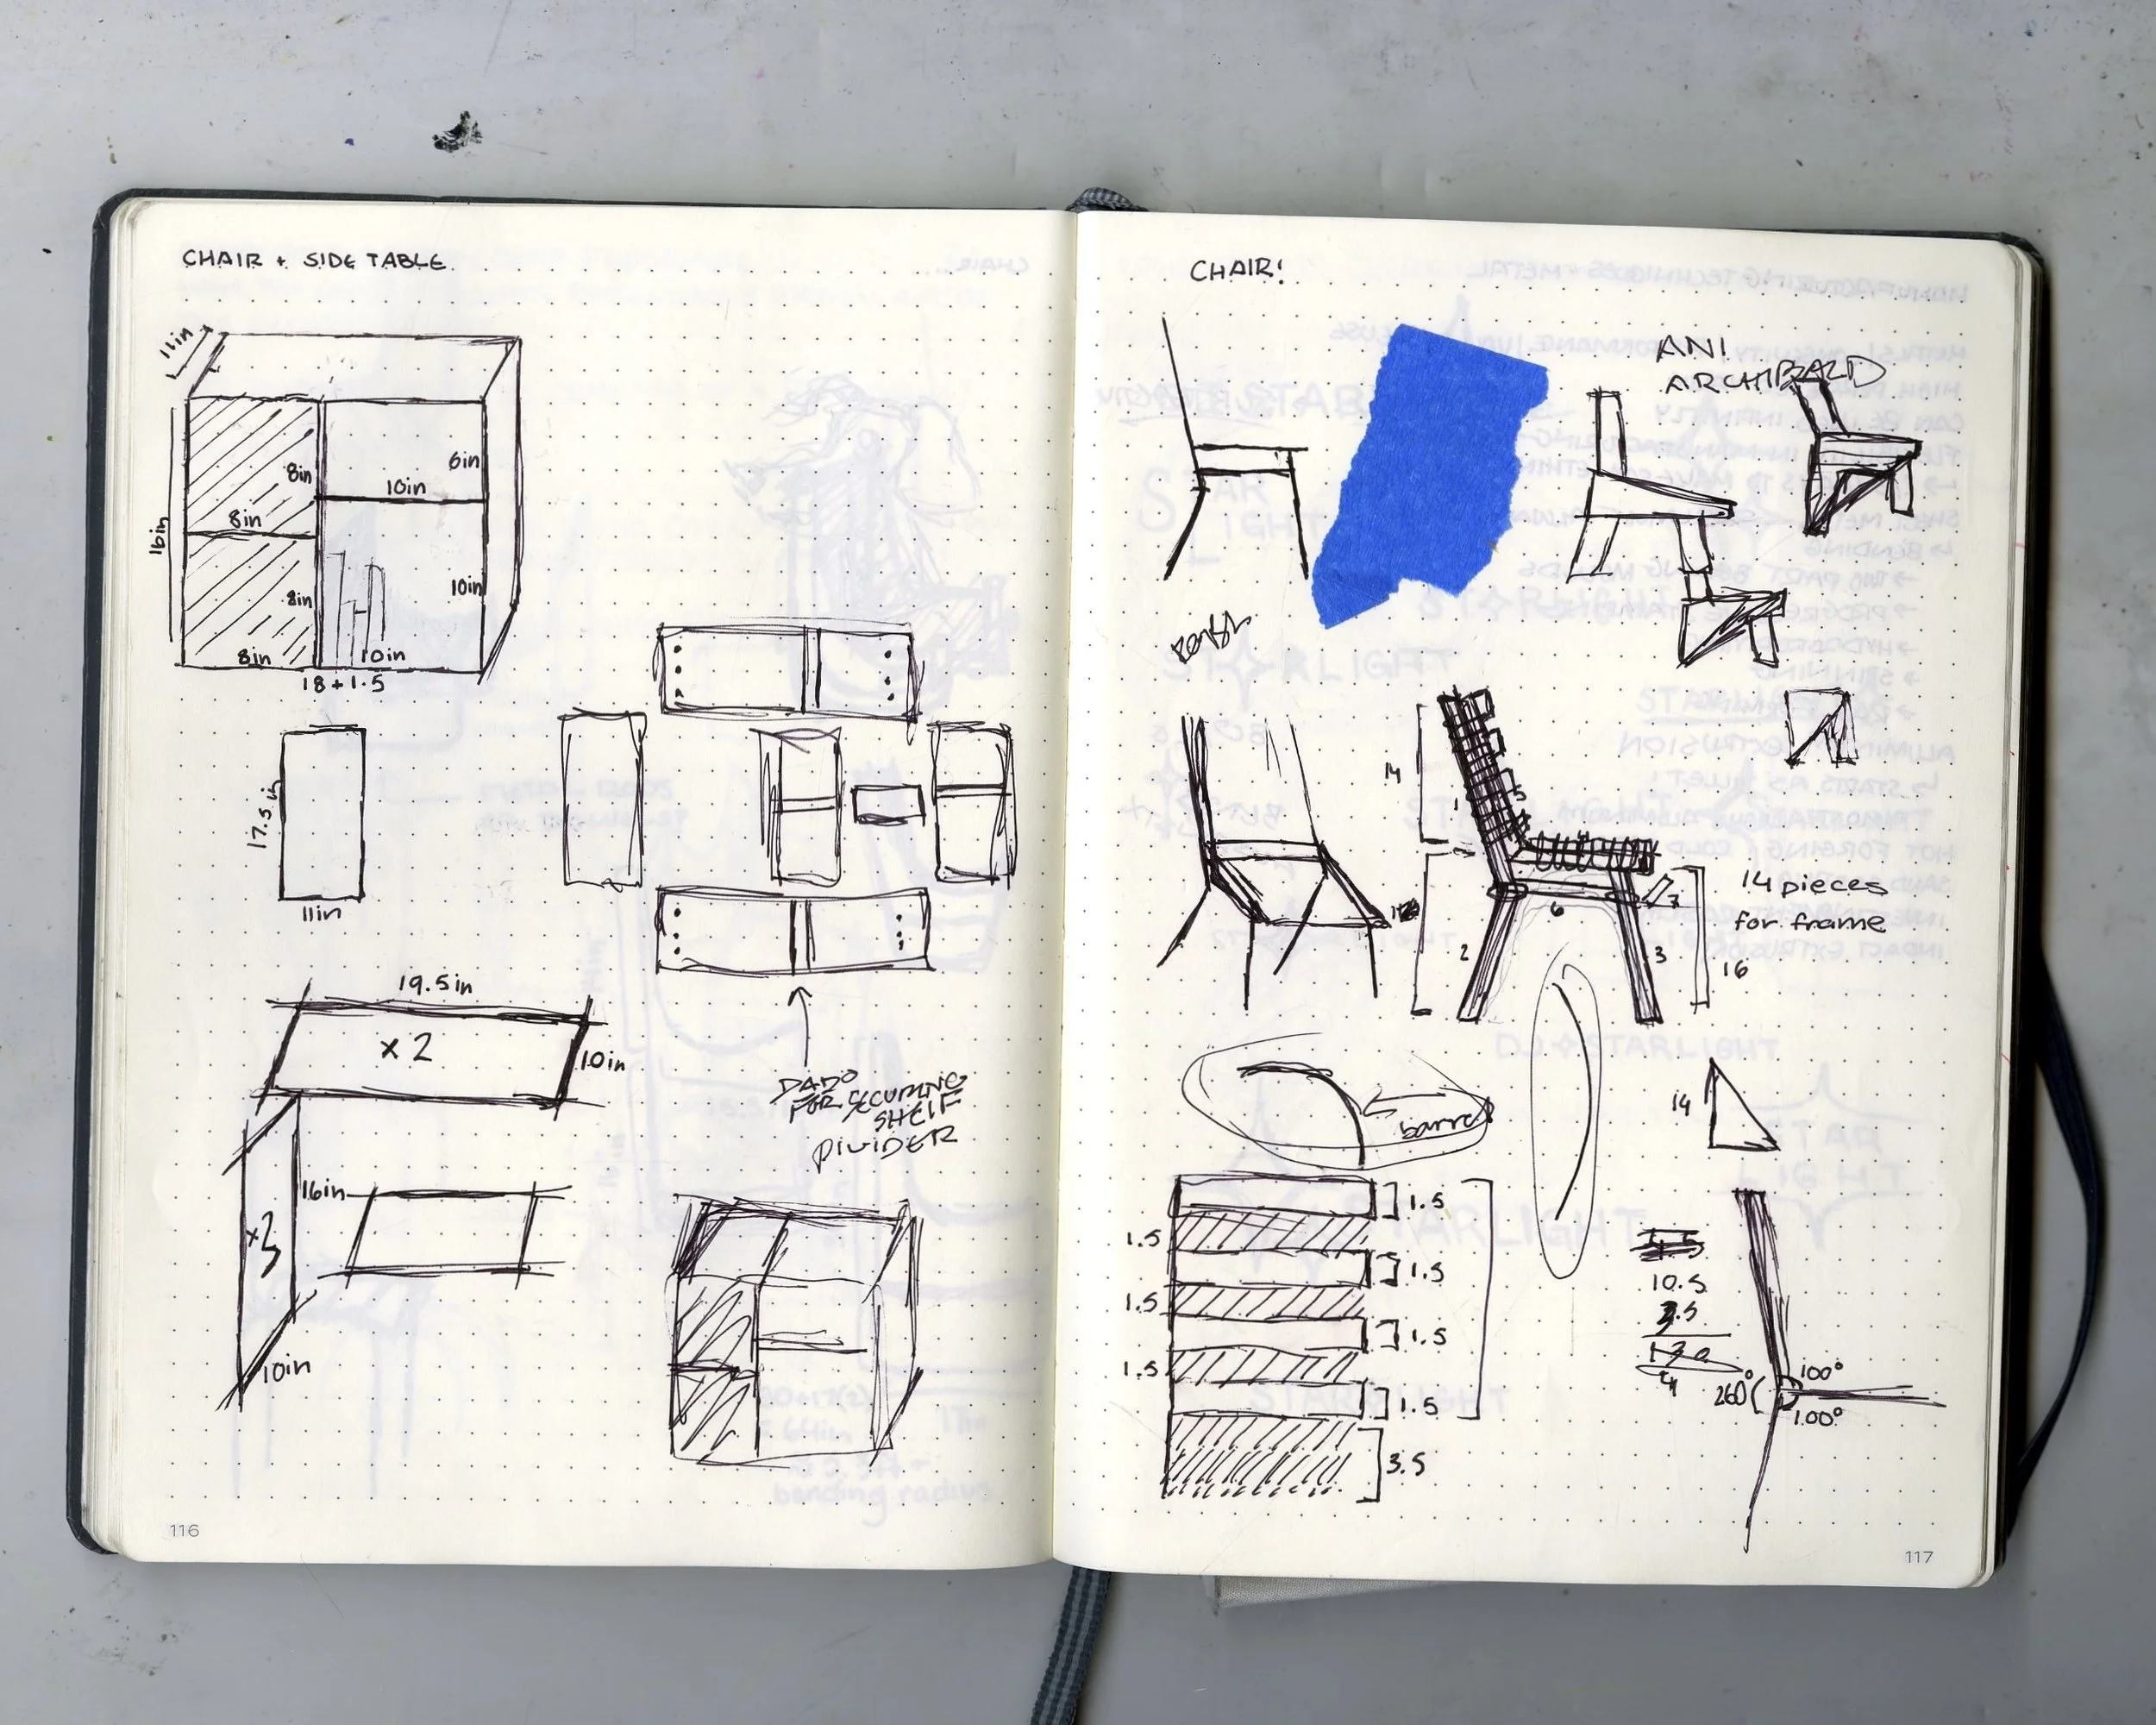 CHAIR + SIDE TABLE
11in
16in
8in
6in
10in
8in
8in
10in
8in
10in
18 + 1.5
17.5in
11in
19.5in
x 2
10in
16in
x3
10in
DADO
FOR SECURING
SHELF
DIVIDER
116
CHAIR!
ANI
ARCHIBALD
14
1
5
6
7
2
3
16
14 pieces
for frame
barrel
14
1.5
1.5
1.5
1.5
1.5
1.5
1.5
3.5
10.5
3.5
4
260°
100°
100°
117